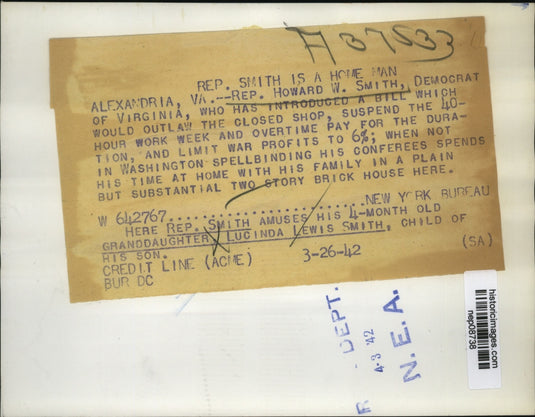 A 37533
REP. SMITH IS A HOME MAN
ALEXANDRIA, VA.--REP. HOWARD W. SMITH, DEMOCRAT
OF VIRGINIA, WHO HAS INTRODUCED A BILL WHICH
WOULD OUTLAW THE CLOSED SHOP, SUSPEND THE 40-
HOUR WORK WEEK AND OVERTIME PAY FOR THE DURA-
TION, AND LIMIT WAR PROFITS TO 6%; WHEN NOT
IN WASHINGTON SPELLBINDING HIS CONFEREES SPENDS
HIS TIME AT HOME WITH HIS FAMILY IN A PLAIN
BUT SUBSTANTIAL TWO STORY BRICK HOUSE HERE.
W 642767..........................NEW YORK BUREAU
HERE REP. SMITH AMUSES HIS 4-MONTH OLD
GRANDDAUGHTER, LUCINDA LEWIS SMITH, CHILD OF
HIS SON.
CREDIT LINE (ACME) 3-26-42 (SA)
BUR DC
DEPT.
4-3 '42
N.E.A.
historicimages.com
nep08738